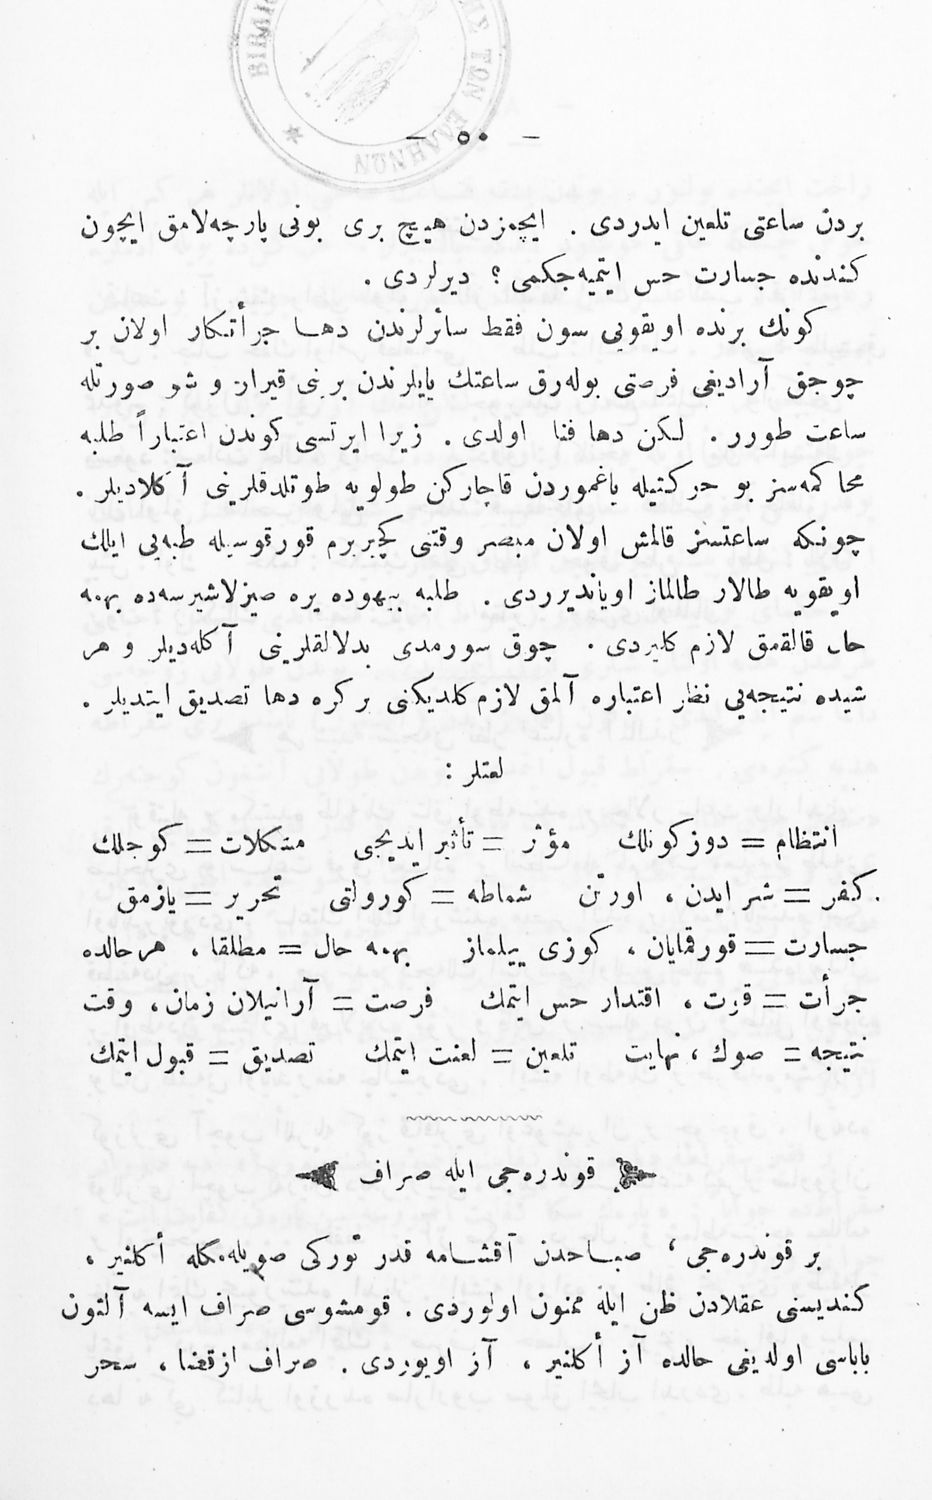 ΒΙΒΛΙΟ
ΜΕ ΤΩΝ
ΕΛΛΗΝΩΝ
— ٥٠ —
بردن ساعتی تلعین ایدردی . ایچمزدن هیچ بری بونی پارچه‌لامق ایچون
کندنده جسارت حس ایتمیه جکمی ؟ دیرلردی .
کونك برنده اویقویی سون فقط سائرلرندن دهـا جرأتکار اولان بر
چوجق آرادیغی فرصتی بوله‌رق ساعتك یایلرندن برنی قیرار و شو صورتله
ساعت طورر . لکن دها فنا اولدی . زیرا ایرتسی کوندن اعتباراً طلبه
محاکمه‌سز بو حرکتیله یاغموردن قاچارکن طولویه طوتلدقلرینی آکلادیلر .
چونکه ساعتسز قالمش اولان مبصر وقتنی کچیریرم قورقوسیله طبه‌یی ایلك
اویقویه طالار طالماز اویاندیرردی . طلبه بیهوده یره صیزلاشیرسه‌ده بهمه
حال قالقمق لازم کلیردی . چوق سورمدی بدلالقلرینی آکله‌دیلر و هر
شیده نتیجه‌یی نظر اعتباره آلمق لازم کلدیکنی بر کره دها تصدیق ایتدیلر .
لغتلر :
انتظام = دوزکونلك مؤثر = تأثیر ایدیجی مشکلات = کوجلك
کفر = شر ایدن ، اورتن شماطه = کورولتی تحریر = یازمق
جسارت = قورقمایان ، کوزی ییلماز بهمه حال = مطلقا ، هر حالده
جرأت = قوت ، اقتدار حس ایتمك فرصت = آرانیلان زمان ، وقت
نتیجه = صوك ، نهایت تلعین = لعنت ایتمك تصدیق = قبول ایتمك
قوندره‌جی ایله صراف
بر قوندره‌جی ، صبـاحدن آقشـامه قدر تورکی صویله‌مکله أکلنیر ،
کندیسنی عقلادن ظن ایله ممنون اولوردی . قومشوسی صراف ایسه آلتون
باباسی اولدیغی حالده آز أکلنیر ، آز اویوردی . صراف ازقضا ، سحر